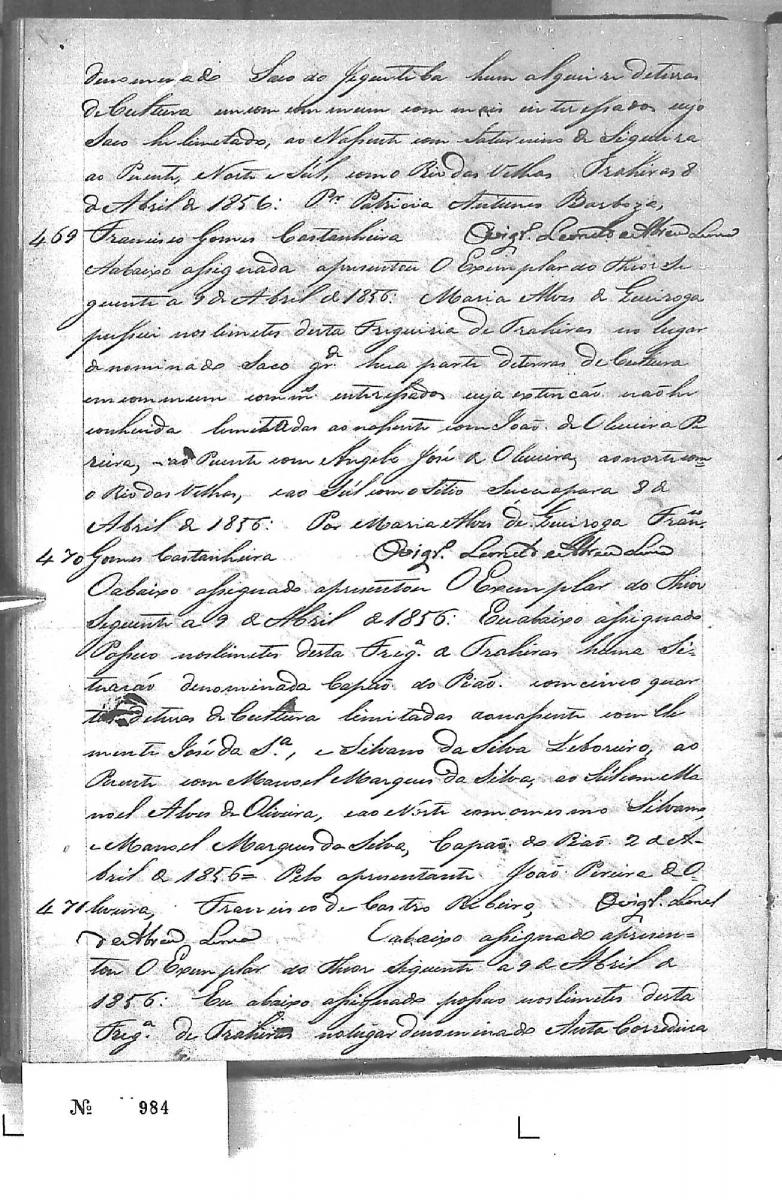 denominado Saco do Jequitiba hum alqueire de terras
de Cultura em commum com mais interessados cujo
Saco he limitado, ao Nascente com Saturnino de Siqueira
ao Puente, Norte e Sul, com o Rio das Velhas Trahiras 8
de Abril de 1856: Pr Patricia Antunes Barboza,
469 Francisco Gomes Castanheira O Vigr.
Aabaixo assignada apresentou O Exemplar do Thior Se
guente a 9 de Abril de 1856: Maria Alves de Queiroga
possui nos limites desta Freguizia de Trahiras no lugar
denominado Saco gr.de hua parte de terras de Cultura
em commum com ms. interessados cuja extenção não he
conhecida limitadas ao nascente com João de Oliveira Pe
reira, ao Puente com Angelo José de Oliveira, ao norte com
o Rio das Velhas, e ao Sul com o Sitio Sucuapara 8 de
Abril de 1856: Por Maria Alves de Queiroga Fran.co
470 Gomes Castanheira O Vigr.
O abaixo assignado apresentou O Exemplar do Thior
Seguente a 9 de Abril de 1856: Eu abaixo assignado
Possuo nos limites desta Freg.a de Trahiras huma Si-
tuação denominada Capão do Páo. com cinco quar
tas de terras de Cultura limitadas ao nascente com Cle
mente José da S.a, e Silvano da Silva Leboreiro, ao
Puente com Manoel Marques da Silva, ao Sul com Ma
noel Alves de Oliveira, e ao Norte com o mesmo Silvano,
e Manoel Marques da Silva, Capão do Páo 2 de A-
bril de 1856= Pelo apresentante João Pereira de O-
471 liveira, Francisco de Castro Ribeiro, O Vigr. Leonel
de Abreu Lima O abaixo assignado apresen-
tou O Exemplar do Thior Siguente a 9 de Abril de
1856: Eu abaixo assignado possuo nos limites desta
Freg.a de Trahiras no lugar denominado Anta Corredeira
№ 984